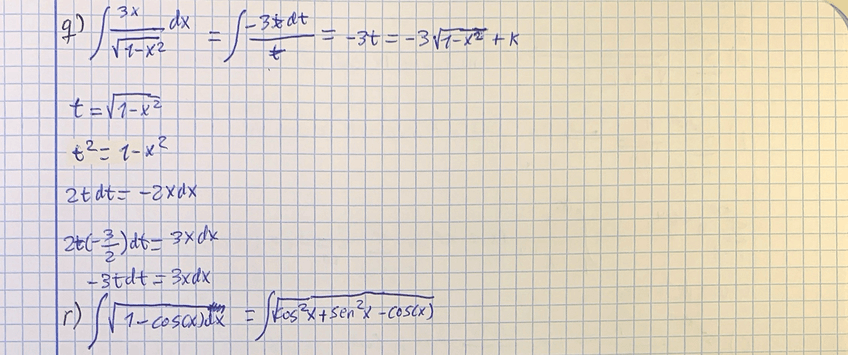 q) ∫ 3x/√(1-x²) dx = ∫ -3t dt/t = -3t = -3√(1-x²) + K
t = √(1-x²)
t² = 1-x²
2t dt = -2x dx
2t(-3/2)dt = 3x dx
-3t dt = 3x dx
r) ∫ √(1-cos(x)) dx = ∫ √(cos²x + sen²x - cos(x))